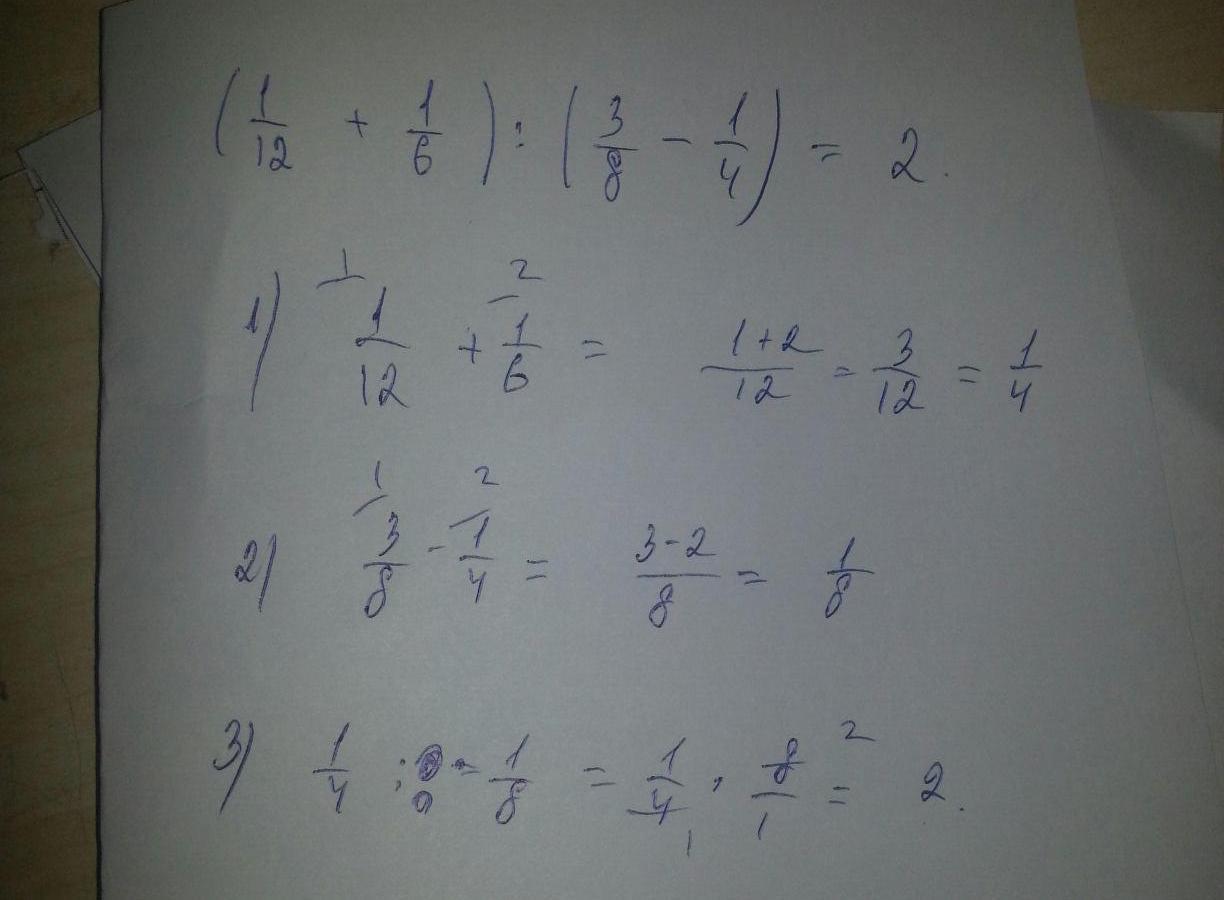 (1/12 + 1/6) : (3/8 - 1/4) = 2.
1) 1/12 ^1 + 1/6 ^2 = (1+2)/12 = 3/12 = 1/4
2) 3/8 ^1 - 1/4 ^2 = (3-2)/8 = 1/8
3) 1/4 : 1/8 = 1/4 _1 · 8/1 ^2 = 2.